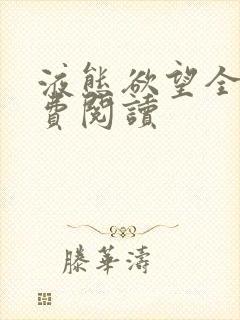 液態欲望全
費閱讀
滕華濤